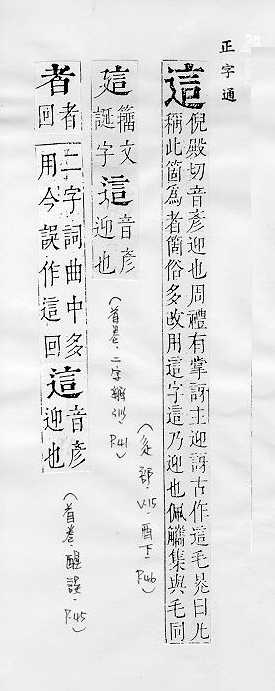 正字通
這
倪殿切音彥迎也周禮有掌訝主迎訝古作這毛晃曰凡
稱此箇為者箇俗多改用這字這乃迎也佩觿集與毛同
(辵部.V.15.酉下.P.46)
籀文
誕字
這
音彥
迎也
(首卷.二字辨似.P.41)
者
者
回
二字詞曲中多
用今誤作這回
這
音彥
迎也
(首卷.醒誤.P.45)